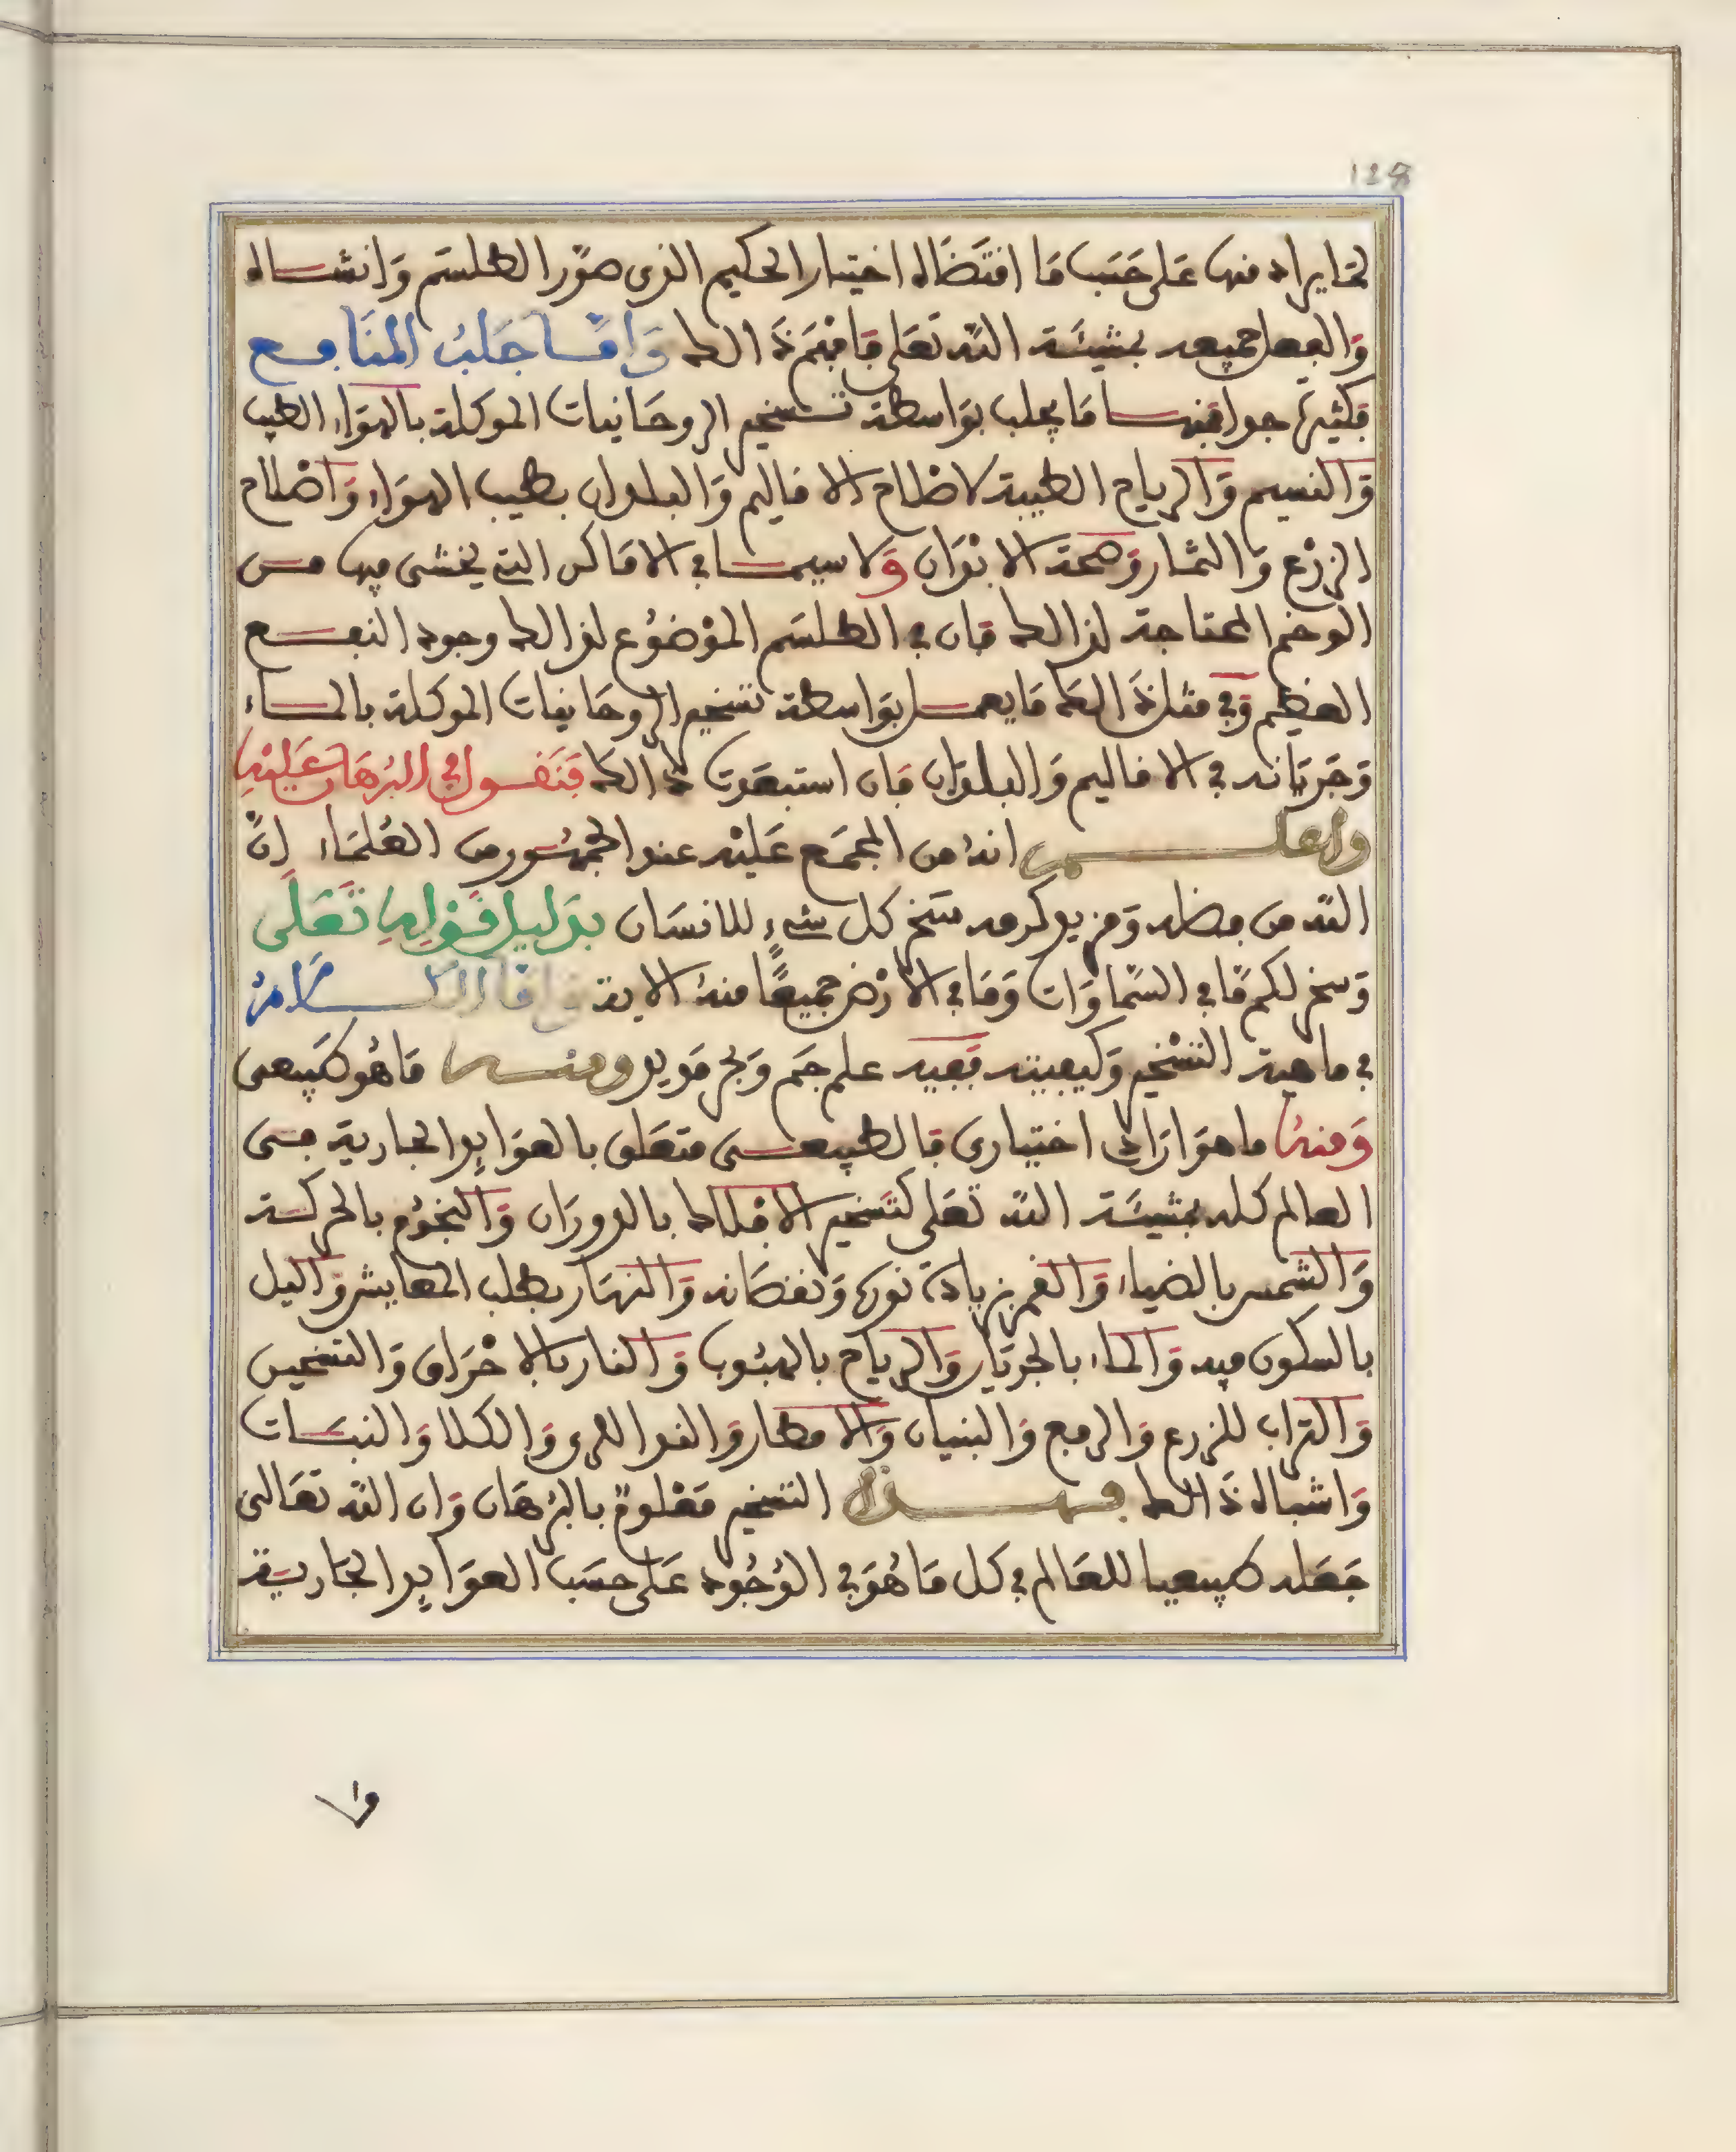 128
لما يراد منها على حسب ما اقتضاه اختيار الحكيم الذى صوّر الطلسم وانشاه
والفعل جميعه بمشيئة الله تعلى فافهم ذالك وامّا جلب المنافع
فكثيرة جدا فمنها ما يجلب بواسطة تسخير الروحانيات الموكلة بالهواء الطيب
والنسيم والرياح الطيبة لاصلاح الاقاليم والبلدان بطيب الهواء واصلاح
الزرع والثمار وصحة الابدان ولا سيما في الاماكن التى يخشى فيها من
الوخم المحتاجة لذالك فان في الطلسم الموضوع لذالك وجود النفع
العظيم وفي مثل ذالك ما يعمل بواسطة تسخير الروحانيات الموكلة بالماء
وجريانه في الاقاليم والبلدان فان استبعدت ذالك فنقول في البرهان عليه
واعلم انه من المجمع عليه عند الجمهور من العلماء انّ
الله من فضله ومزيد كرمه سخر كل شىء للانسان بدليل قوله تعلى
وسخر لكم ما في السماوات وما في الارض جميعًا منه الاية وامّا الكلام
في ماهية التسخير وكيفيته ففيه علم جم وبحر مديد ومنه ما هو طبيعى
ومنه ما هو ارادى اختيارى فالطبيعى متعلق بالعوايد الجارية فى
العالم كله بمشيئة الله تعلى كتسخير الافلاك بالدوران والنجوم بالحركة
والشمس بالضياء والقمر بزيادة نوره ونقصانه والنهار بطلب المعايش واليل
بالسكون فيه والماء بالجريان والرياح بالهبوب والنار بالاحراق والتسخين
والتراب للزرع والرفع والبنيان والامطار والغدا لمرى والكلا والنبات
واشباه ذالك فهذا التسخير معلوم بالبرهان وان الله تعالى
جعله طبيعيا للعالم في كل ما هو في الوجود على حسب العوايد الجارية
وا